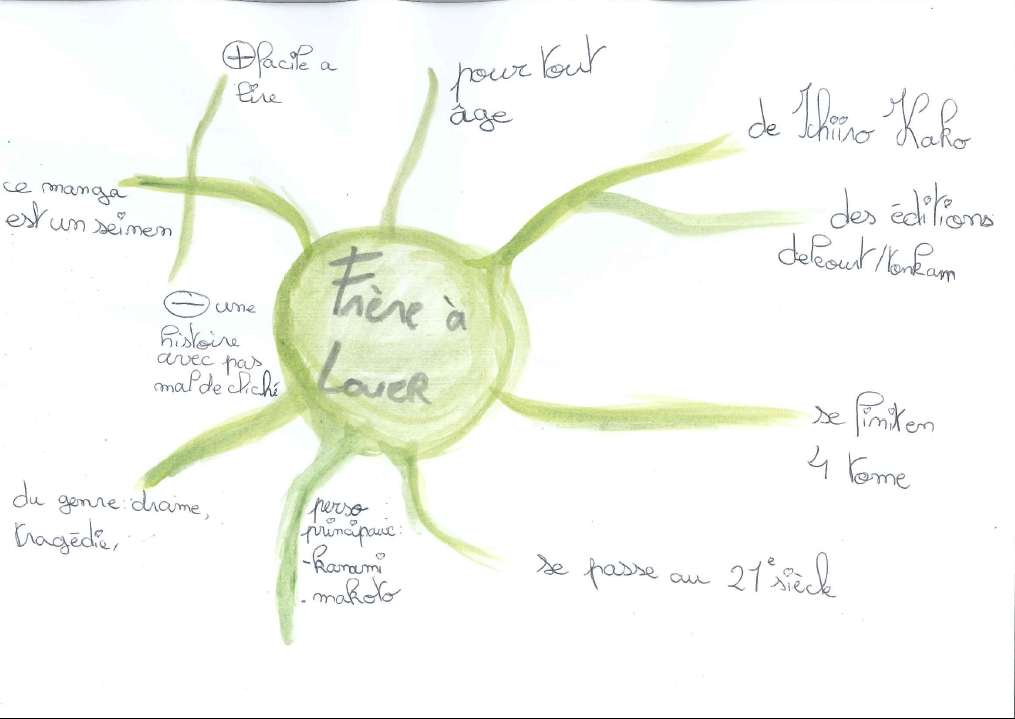 Frère à
Louer
⊕ facile a
lire
pour tout
âge
de Ichiiro Kako
des éditions
delcourt/tonkam
se finit en
4 tome
se passe au 21e siècle
perso
principaux:
- kanami
- makoto
du genre: drame,
tragédie,
⊖ une
histoire
avec pas
mal de cliché
ce manga
est un seinen